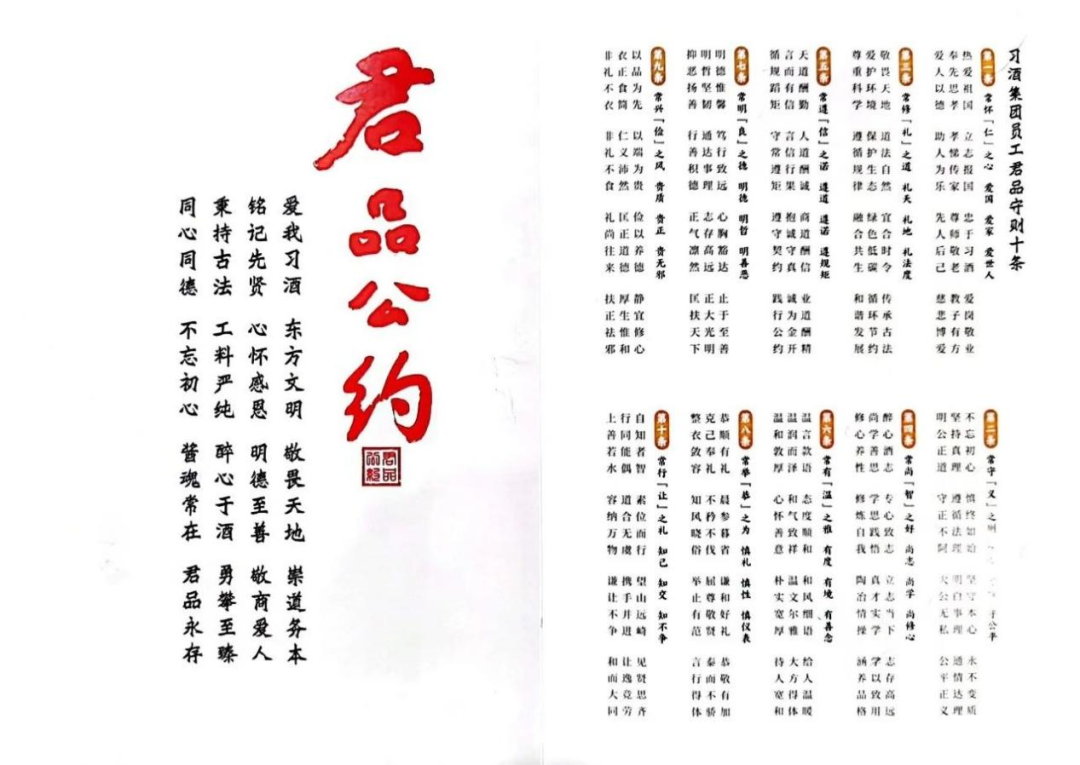 君品公约
爱我习酒 东方文明 敬畏天地 崇道务本
铭记先贤 心怀感恩 明德至善 敬商爱人
秉持古法 工料严纯 醉心于酒 勇攀至臻
同心同德 不忘初心 酱魂常在 君品永存
习酒集团员工君品守则十条
第一条 常怀「仁」之心 爱国 爱家 爱世人
热爱祖国 立志报国 忠于习酒 爱岗敬业
奉先思孝 孝悌传家 尊师敬老 教子有方
爱人以德 助人为乐 先人后己 慈悲博爱
第三条 常修「礼」之道 礼天 礼地 礼法度
敬畏天地 道法自然 宜合时令 传承古法
爱护环境 保护生态 绿色低碳 循环节约
尊重科学 遵循规律 融合共生 和谐发展
第五条 常遵「信」之诺 遵道 遵诺 遵规矩
天道酬勤 人道酬诚 商道酬信 业道酬精
言而有信 言信行果 抱诚守真 诚为金开
循规蹈矩 守常遵矩 遵守契约 践行公约
第七条 常明「良」之德 明德 明哲 明善恶
明德惟馨 笃行致远 心胸豁达 止于至善
明哲坚韧 通达事理 志存高远 正大光明
抑恶扬善 行善积德 正气凛然 匡扶天下
第九条 常兴「俭」之风 贵质 贵正 贵无邪
以品为先 以端为贵 俭以养德 静宜修心
衣正食简 仁义沛然 匡正道德 厚生惟和
非礼不衣 非礼不食 礼尚往来 扶正祛邪
第二条 常守「义」之则 于公平
不忘初心 慎终如始 坚守本心 永不变质
坚持真理 遵循法理 明白事理 通情达理
明公正道 守正不阿 大公无私 公平正义
第四条 常尚「智」之好 尚志 尚学 尚修心
醉心酒志 专心致志 立志当下 志存高远
尚学善思 学思践悟 真才实学 学以致用
修心养性 修炼自我 陶冶情操 涵养品格
第六条 常有「温」之雅 有度 有境 有善念
温言款语 态度顺和 和风细语 给人温暖
温润而泽 和气致祥 温文尔雅 大方得体
温和敦厚 心怀善意 朴实宽厚 待人宽和
第八条 常举「恭」之为 慎礼 慎性 慎仪表
恭顺有礼 晨参暮省 谦和好礼 恭敬有加
克己奉礼 不矜不伐 屈尊敬贤 泰而不骄
整衣敛容 知风晓俗 举止有范 言行得体
第十条 常行「让」之礼 知己 知交 知不争
自知者智 素位而行 望山远崎 见贤思齐
行同能偶 道合无虞 携手并进 让逸竞劳
上善若水 容纳万物 谦让不争 和而大同